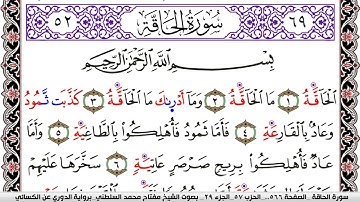 ٦٩ سُورَةُ الْحَاقَّةِ ٥٢
بِسْمِ اللَّهِ الرَّحْمَٰنِ الرَّحِيمِ
الْحَاقَّةُ ١ مَا الْحَاقَّةُ ٢ وَمَا أَدْرَىٰكَ مَا الْحَاقَّةُ ٣ كَذَّبَتْ ثَمُودُ
وَعَادٌ بِالْقَارِعَةِ ٤ فَأَمَّا ثَمُودُ فَأُهْلِكُوا بِالطَّاغِيَةِ ٥ وَأَمَّا
عَادٌ فَأُهْلِكُوا بِرِيحٍ صَرْصَرٍ عَاتِيَةٍ ٦ سَخَّرَهَا عَلَيْهِمْ
سورة الحاقة _ الصفحة ٥٦٦ _ الحزب ٥٧ _ الجزء ٢٩ _ بصوت الشيخ مفتاح محمد السلطني _ برواية الدوري عن الكسائي